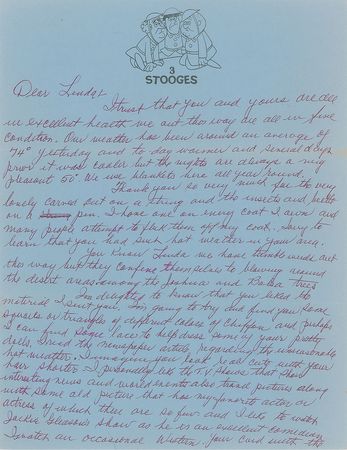 3
STOOGES
Dear Linda:
I trust that you and yours are all
in excellent health we out this way are all in fine
condition. Our weather has been around an average of
74° yesterday and to day warmer and several days
prior it was cooler but the nights are always a nice
pleasant 50° We use blankets here all year round.
Thank you so very much for the very
lovely carved out on a string and the insects and
on a pen. I have one on every coat I own and
many people attempt to flick them off my coat. Sorry to
learn that you had such hot weather in your area.
You know Linda we have tumble weeds out
this way but they confine themselves to blowing around
the desert areas among the Joshua and Trees
I'm delighted to know that you liked the
material I sent you. I'm going to try and find you some
squares or triangles of different colors of Chiffon and perhaps
I can find some lace to help dress some of your pretty
dolls. I read the newspaper article regarding the unseasonable
hot weather. I imagine you look real cute with your
hair shorter. I personally like the TV shows that show
interesting news and world events also travel pictures along
with some old picture that has my favorite actor or
actress of which there are so few and I like to watch
Jackie Gleason's show as he is an excellent comedian
I watch an occasional Western. Your card with the